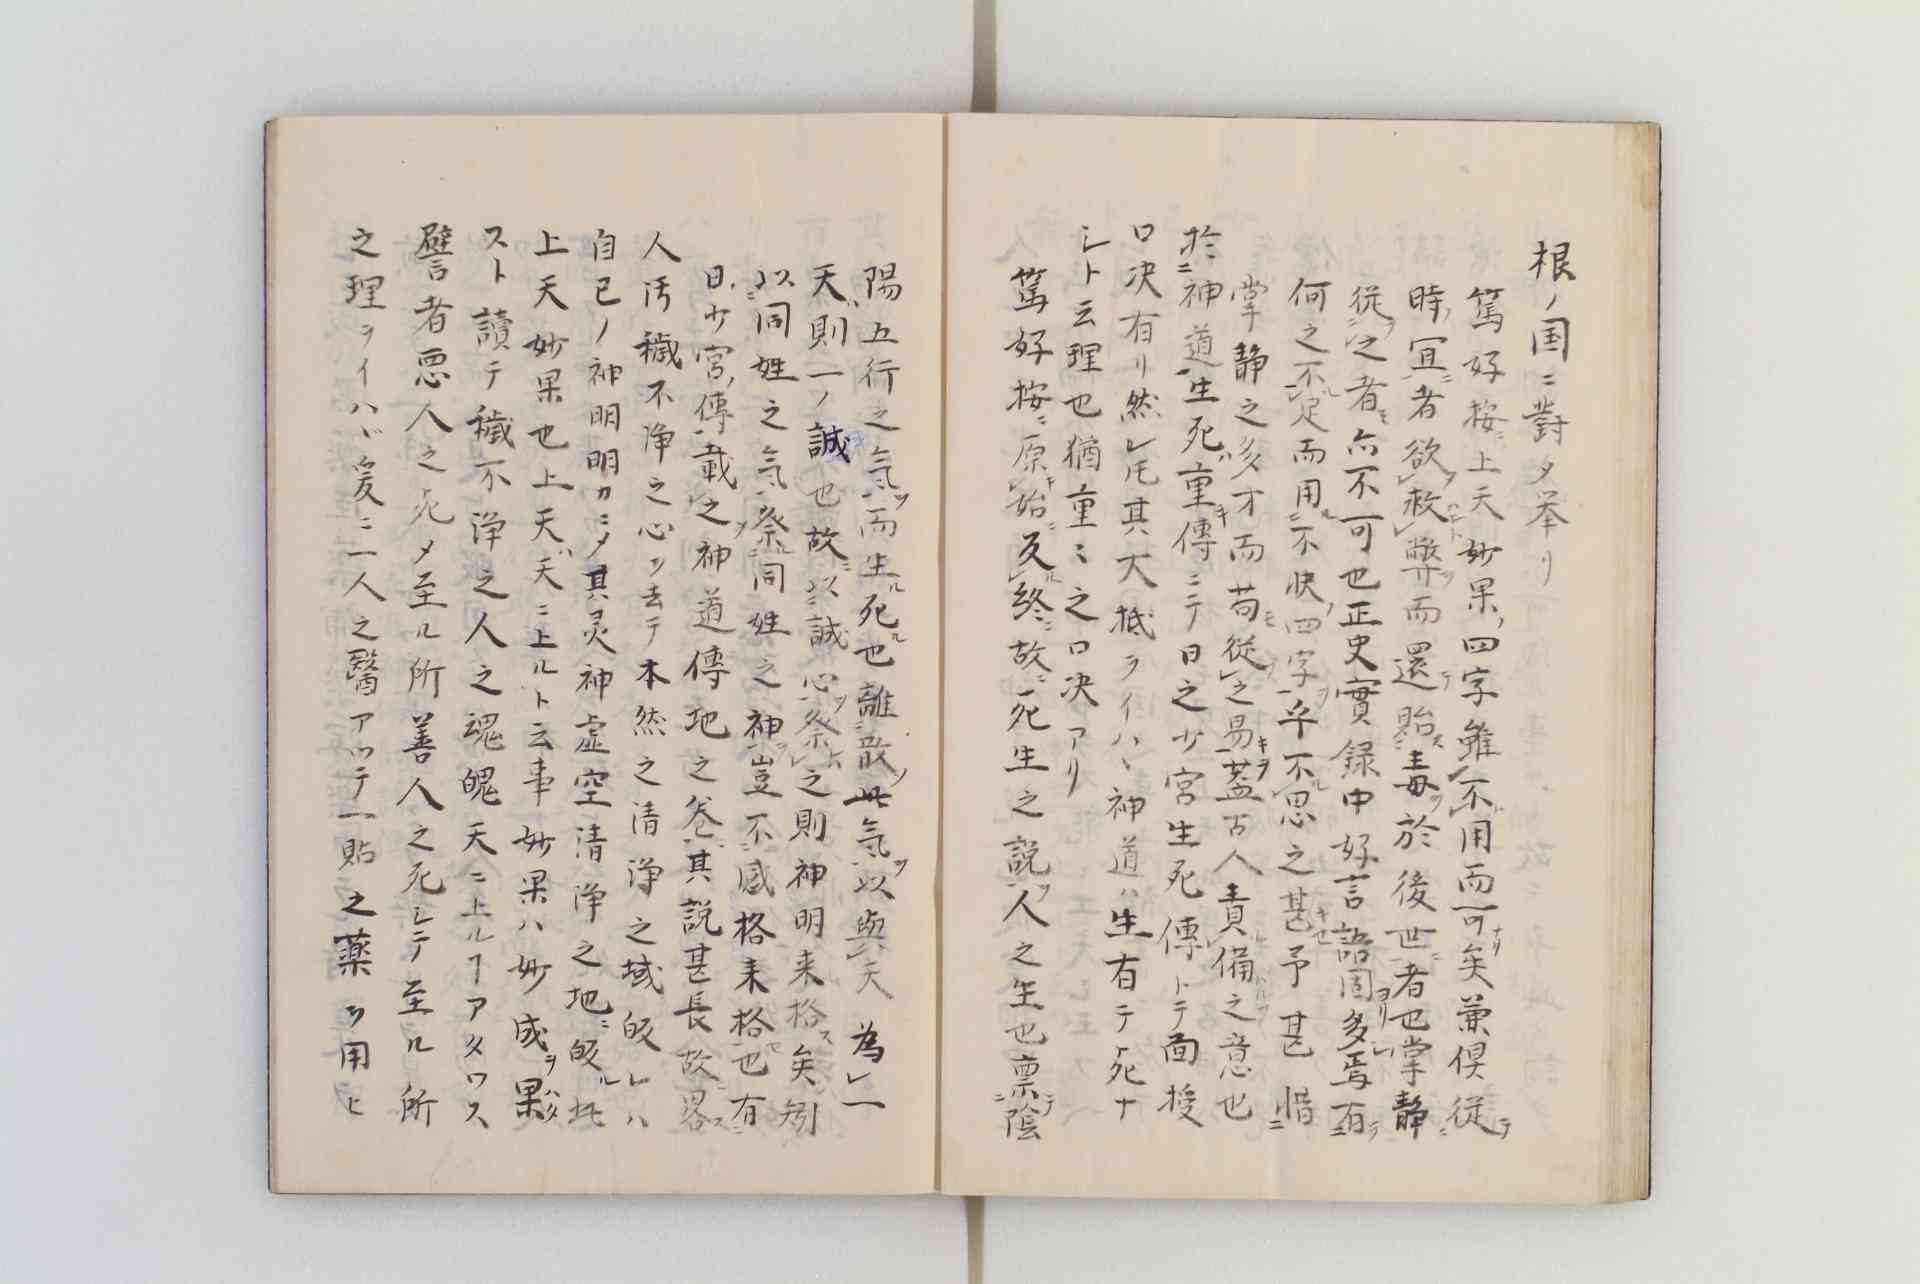 根ノ国ニ對メ挙リ
篤好按ニ上天妙果ノ四字雖不用而可矣兼倶従テ
時ノ冝ニ者欲救弊ヲ而還テ貽ス毒ヲ於後世ニ者也掌静
従之者モ亦不可也正史實録中好言語固ヨリ多焉有テ
何之不ル足而用ル不快ノ四字ヲ乎不ル思之甚キ也予甚惜ニ
掌静之多才而苟モ従之易キヲ蓋古人責備之意也
於神道ニ生死ハ重キ傳ニテ日之少宮生死傳トテ面授
口决有リ然レ𪜈其大抵ヲイハヽ神道ハ生有テ死ナ
シト云理也猶重ニ之口决アリ
篤好按ニ原始ニ反ル終ニ故ニ死生之説ヲ人之生也禀テ陰
陽五行之氣ヲ而生ル死ル也離散ノ此氣ヲ以與天為一
天ハ則一ノ誠也故ニ以誠心ヲ祭ル之則神明来格ス矣矧
以同姓之氣ヲ祭ル同姓之神ヲ豈不感格来格也有
日ノ少宮ノ傳載之ヲ神道傳地之巻ニ其説甚長故ニ畧ス
人汚穢不浄之心ヲ去テ本然之清浄之域ニ皈レハ
自己ノ神明明カニメ其灵神虚空清浄之地ニ皈ル此
上天妙果也上天ハ天ニ上ルト云事妙果ハ妙成ヲ果ハタ
スト讀テ穢不浄之人之魂魄天ニ上ルヿアタワス
譬者悪人之死メ至ル所善人之死シテ至ル所
之理ヲイハヾ爰ニ一人之醫アツテ一貼之薬ヲ用ヒ